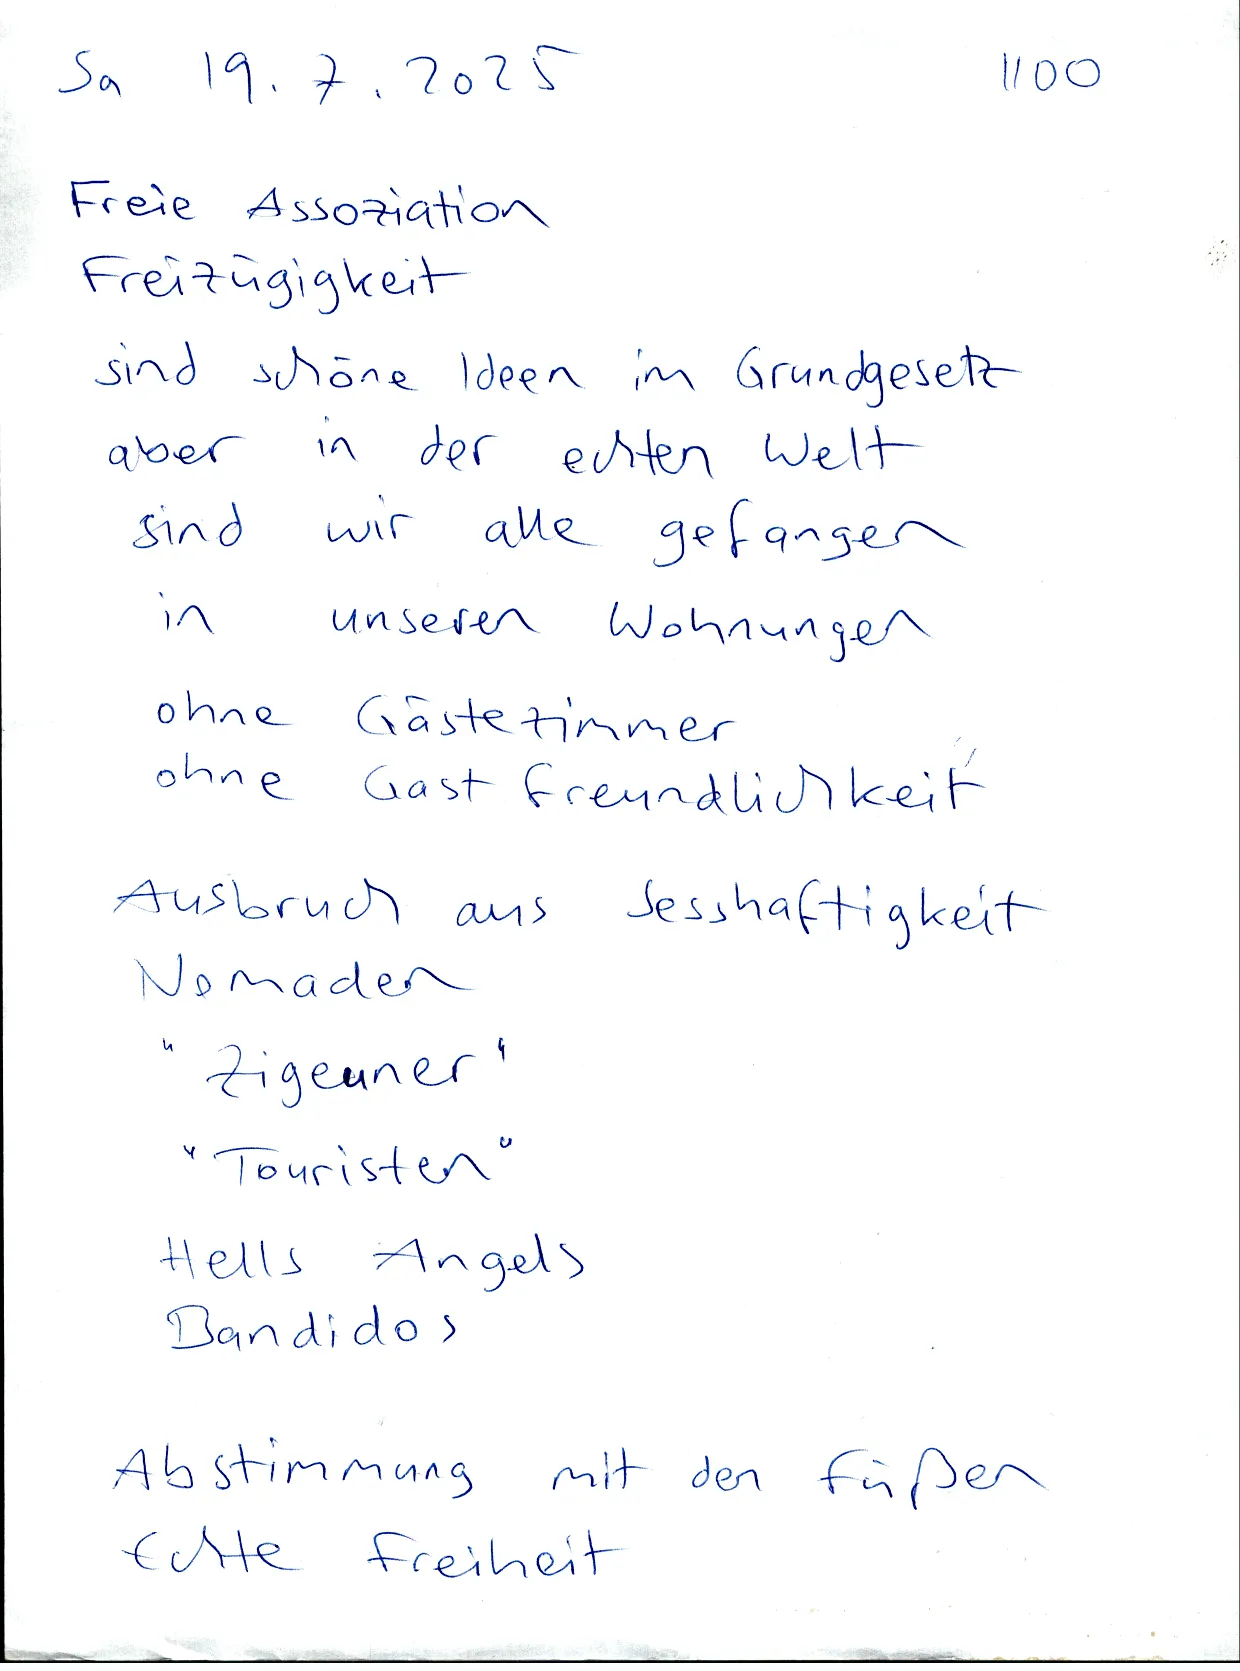 Sa 19.7.2025 1100
Freie Assoziation
Freizügigkeit
sind schöne Ideen im Grundgesetz
aber in der echten Welt
sind wir alle gefangen
in unseren Wohnungen
ohne Gästezimmer
ohne Gastfreundlichkeit
Ausbruch aus Sesshaftigkeit
Nomaden
"Zigeuner"
"Touristen"
Hells Angels
Bandidos
Abstimmung mit den Füßen
Echte Freiheit